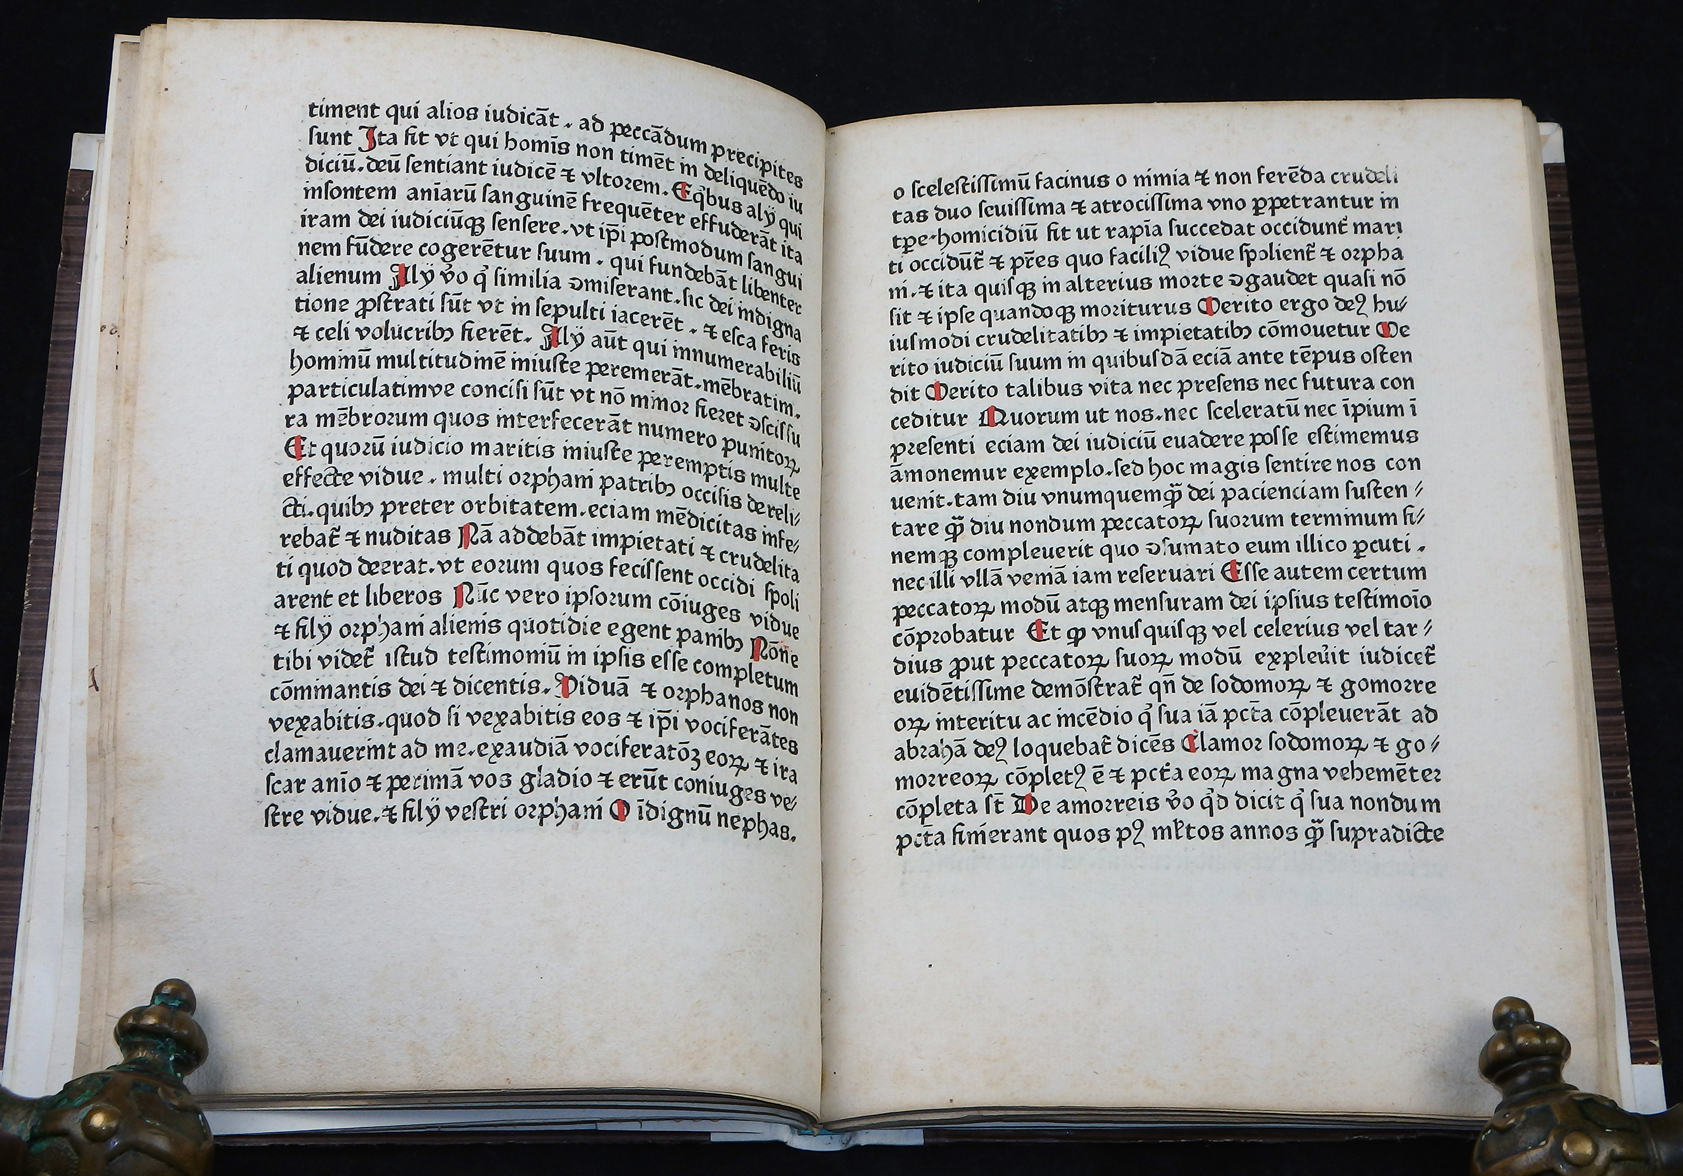 timent qui alios iudicāt . ad peccādum precipites
sunt Ita fit vt qui homīs non timēt in deliquēdo iu
diciū . deū sentiant iudicē ⁊ vltorem . E qͥbus alÿ qui
insontem aniarū sanguinē frequēter effuderāt ita
iram dei iudiciūqꝫ sensere . vt ip̄i postmodum sangui
nem fūdere cogerētur suum . qui fundebāt libenter
alienum Alÿ v̄o q̇ similia ꝯmiserant . sic dei indigna
tione ꝓstrati sūt vt in sepulti iacerēt . ⁊ esca feris
⁊ celi volucribꝫ fierēt . Alÿ aūt qui innumerabiliū
hominū multitudinē iniuste peremerāt . mēbratim .
particulatimve concisi sūt vt nō minor fieret ꝯscissu
ra mēbrorum quos interfecerāt numero punitoꝝ
Et quorū iudicio maritis iniuste peremptis multe
effecte vidue . multi orphani patribꝫ occisis dereli⸗
cti . quibꝫ preter orbitatem . eciam mēdicitas infe⸗
rebat̄ ⁊ nuditas Nā addebāt impietati ⁊ crudelita
ti quod deerat . vt eorum quos fecissent occidi spoli
arent et liberos Nūc vero ipsorum cōiuges vidue
⁊ filÿ orphani alienis quotidie egent panibꝫ Nōne
tibi videt̄ istud testimoniū in ipsis esse completum
cōminantis dei ⁊ dicentis . Viduā ⁊ orphanos non
vexabitis . quod si vexabitis eos ⁊ ip̄i vociferātes
clamauerint ad me . exaudiā vociferatōꝫ eoꝝ ⁊ ira
scar anīo ⁊ perimā vos gladio ⁊ erūt coniuges ve⸗
stre vidue . ⁊ filÿ vestri orphani O īdignū nephas .
o scelestissimū facinus o nimia ⁊ non ferēda crudeli
tas duo seuissima ⁊ atrocissima vno ꝑpetrantur in
tꝑe . homicidiū fit ut rapīa succedat occidunt̄ mari
ti occidūt̄ ⁊ pr̄es quo faciliꝰ vidue spolient̄ ⁊ orpha
ni . ⁊ ita quisqꝫ in alterius morte ꝯgaudet quasi nō
sit ⁊ ipse quandoqꝫ moriturus Merito ergo deꝰ hu⸗
iusmodi crudelitatibꝫ ⁊ impietatibꝫ cōmouetur Me
rito iudiciū suum in quibusdā eciā ante tēpus osten
dit Merito talibus vita nec presens nec futura con
ceditur Quorum ut nos . nec sceleratū nec īpium ī
presenti eciam dei iudiciū euadere posse estimemus
āmonemur exemplo . sed hoc magis sentire nos con
uenit . tam diu vnumquemqꝫ̄ dei pacienciam susten⸗
tare qꝫ̄ diu nondum peccatoꝝ suorum terminum fi⸗
nemqꝫ compleuerit quo ꝯsumato eum illico ꝑcuti .
nec illi vllā veniā iam reseruari Esse autem certum
peccatoꝝ modū atqꝫ mensuram dei ipsius testimoīo
cōprobatur Et ꝙ vnusquisqꝫ vel celerius vel tar⸗
dius ꝓut peccatoꝝ suoꝝ modū expleu̇it iudicet̄
euidētissime demōstrat̄ qn̄ de sodomoꝝ ⁊ gomorre
oꝝ interitu ac incēdio q̇ sua iā pctā cōpleuerāt ad
abrahā deꝰ loquebat̄ dicēs Clamor sodomoꝝ ⁊ go⸗
morreoꝝ cōpletꝰ ē ⁊ pctā eoꝝ magna vehemēter
cōpleta st̄ De amorreis v̄o qͦd dicit q̇ sua nondum
pctā finierant quos pꝰ ml̄tos annos qꝫ̄ supradicte